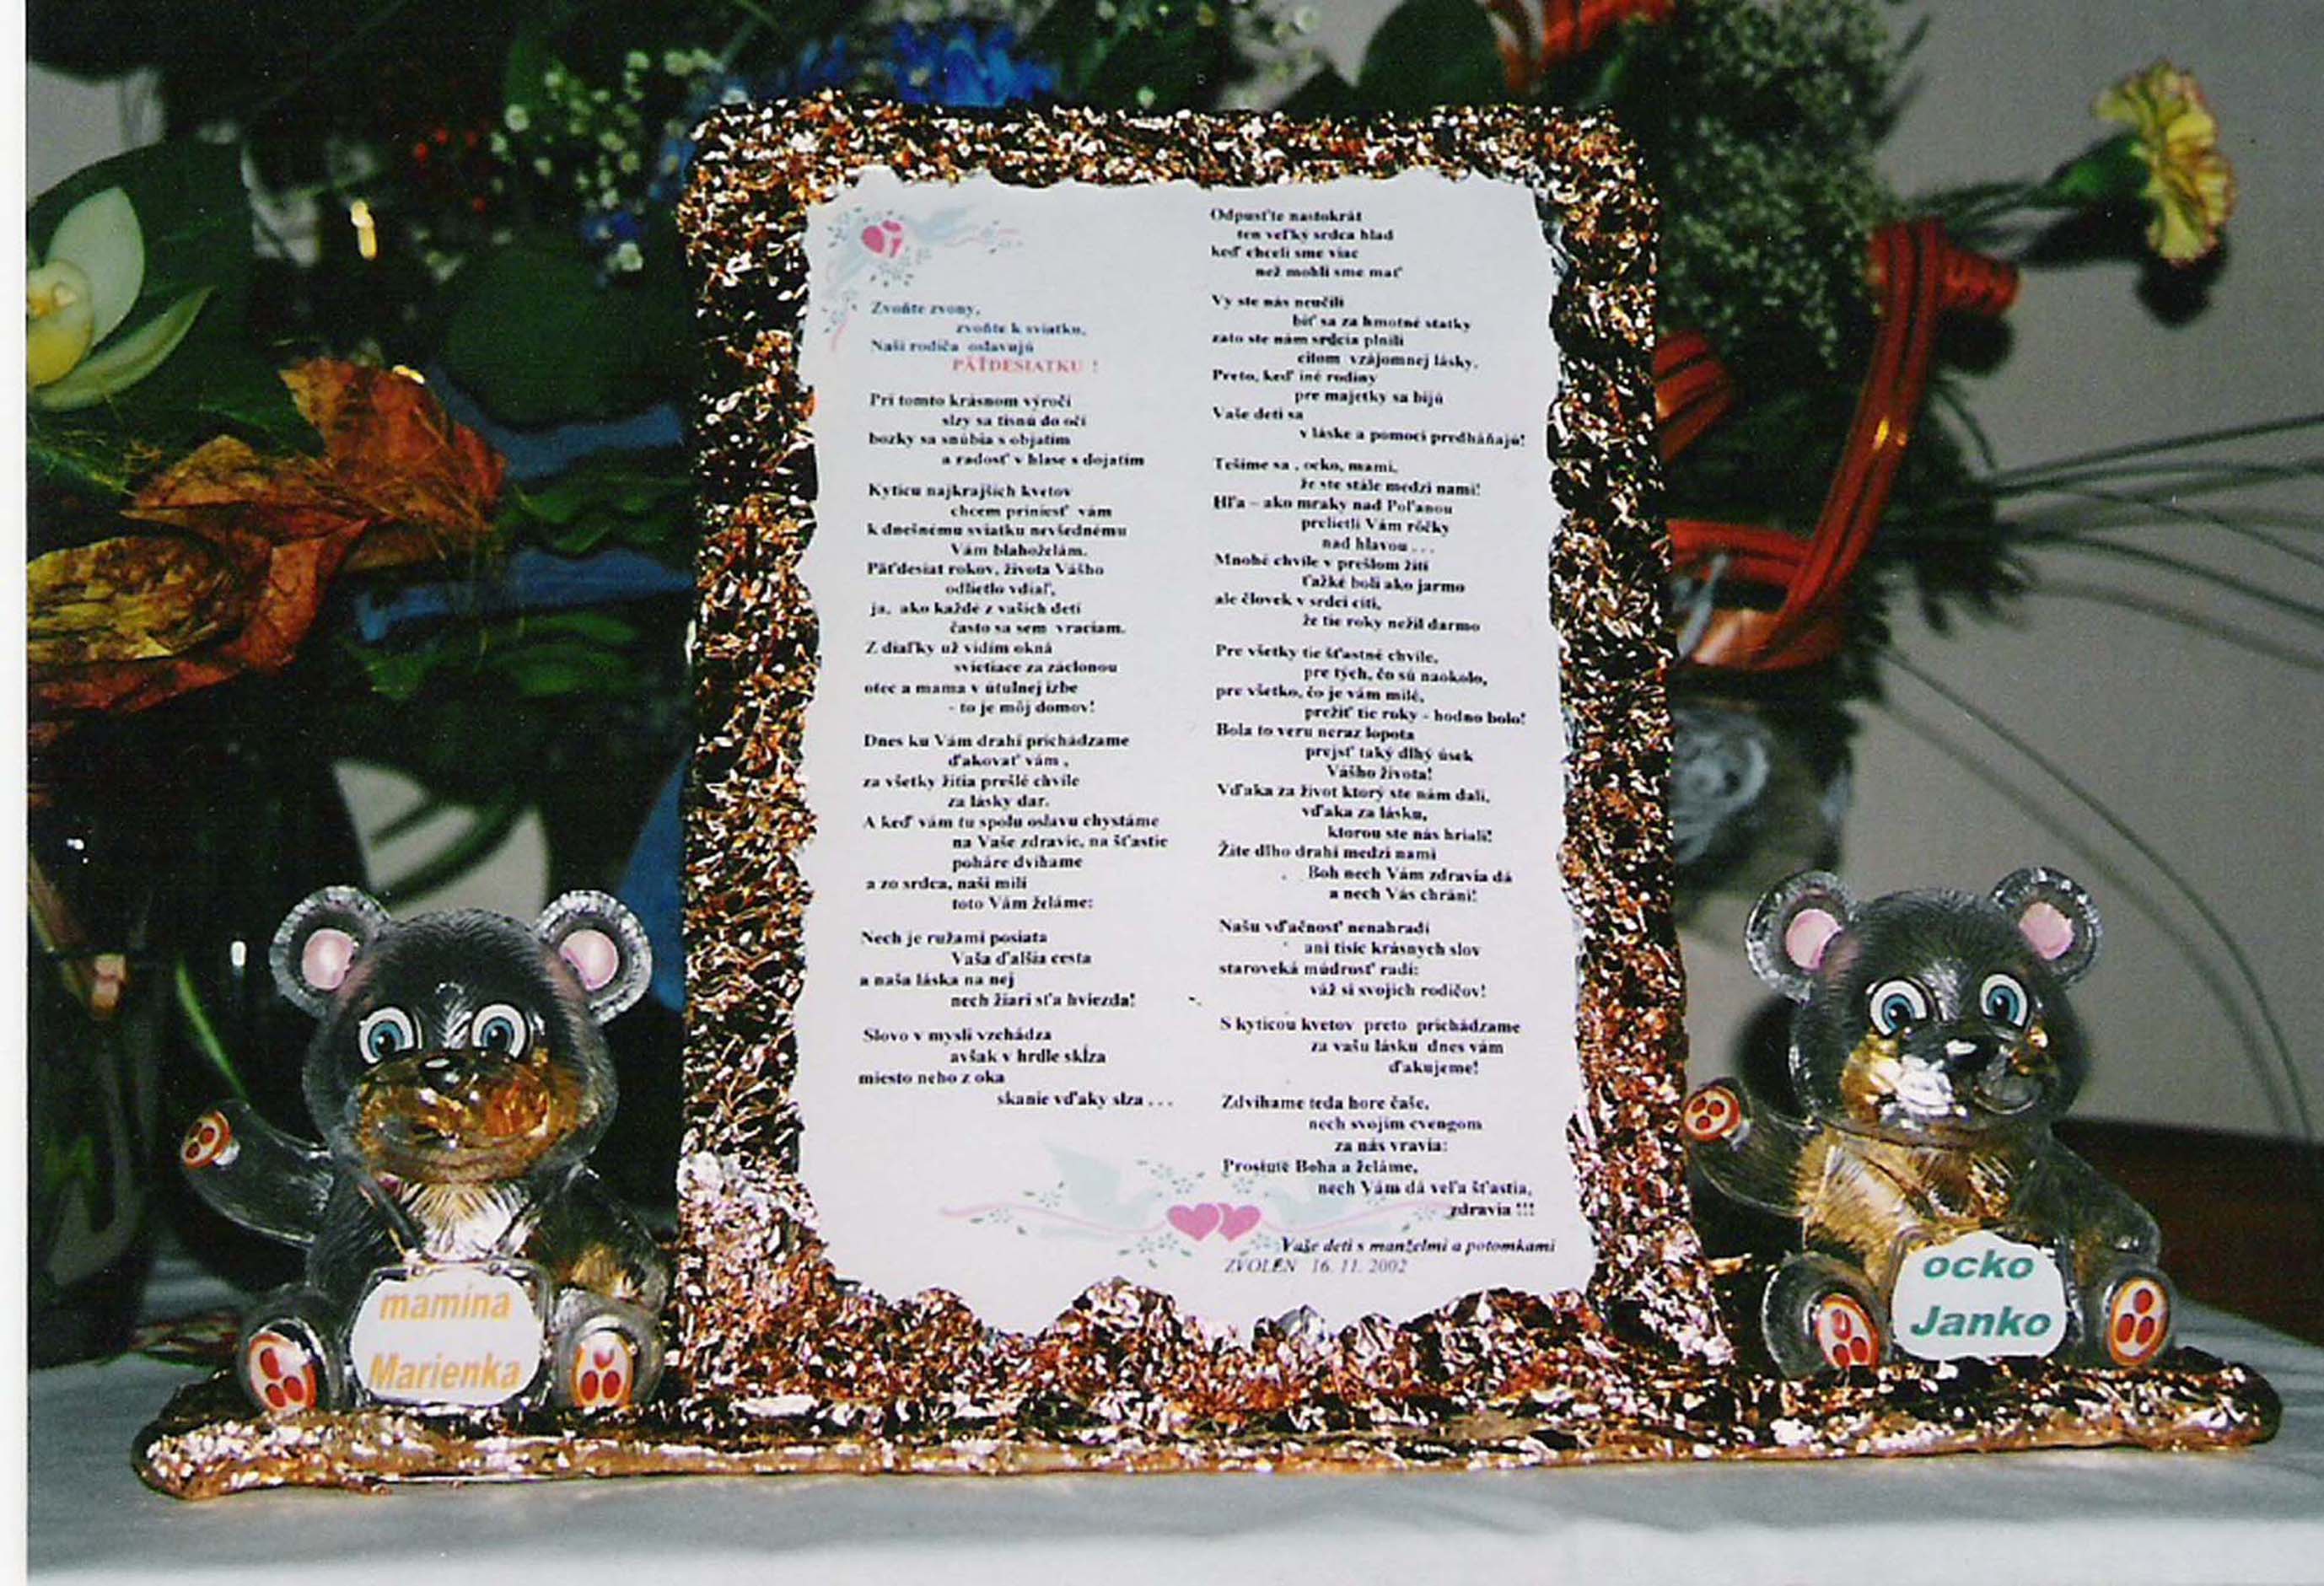 Zvoňte zvony,
zvoňte k sviatku,
Naši rodiča oslavujú
PÄŤDESIATKU !
Pri tomto krásnom výročí
slzy sa tisnú do očí
bozky sa snúbia s objatím
a radosť v hlase s dojatím
Kyticu najkrajších kvetov
chcem priniesť vám
k dnešnému sviatku nevšednému
Vám blahoželám.
Päťdesiat rokov, života Vášho
odlietlo vdiaľ,
ja, ako každé z vašich detí
často sa sem vraciam.
Z diaľky už vidím okná
svietiace za záclonou
otec a mama v útulnej izbe
- to je môj domov!
Dnes ku Vám drahí prichádzame
ďakovať vám ,
za všetky žitia prešlé chvíle
za lásky dar.
A keď vám tu spolu oslavu chystáme
na Vaše zdravie, na šťastie
poháre dvíhame
a zo srdca, naši milí
toto Vám želáme:
Nech je ružami posiata
Vaša ďalšia cesta
a naša láska na nej
nech žiari sťa hviezda!
Slovo v mysli vzchádza
avšak v hrdle skĺza
miesto neho z oka
skanie vďaky slza . . .
Odpusťte nastokrát
ten veľký srdca hlad
keď chceli sme viac
než mohli sme mať
Vy ste nás neučili
biť sa za hmotné statky
zato ste nám srdcia plnili
citom vzájomnej lásky.
Preto, keď iné rodiny
pre majetky sa bijú
Vaše deti sa
v láske a pomoci predháňajú!
Tešíme sa , ocko, mami,
že ste stále medzi nami!
Hľa – ako mraky nad Poľanou
preletli Vám rôčky
nad hlavou . . .
Mnohé chvíle v prešlom žití
ťažké boli ako jarmo
ale človek v srdci cíti,
že tie roky nežil darmo
Pre všetky tie šťastné chvíle,
pre tých, čo sú naokolo,
pre všetko, čo je vám milé,
prežiť tie roky - hodno bolo!
Bola to veru neraz lopota
prejsť taký dlhý úsek
Vášho života!
Vďaka za život ktorý ste nám dali,
vďaka za lásku,
ktorou ste nás hriali!
Žite dlho drahí medzi nami
Boh nech Vám zdravia dá
a nech Vás chráni!
Našu vďačnosť nenahradí
ani tisíc krásnych slov
staroveká múdrosť radí:
váž si svojich rodičov!
S kyticou kvetov preto prichádzame
za vašu lásku dnes vám
ďakujeme!
Zdvíhame teda hore čaše,
nech svojim cvengom
za nás vravia:
Prosiuc Boha a želáme,
nech Vám dá veľa šťastia,
zdravia !!!
Vaše deti s manželmi a potomkami
ZVOLEN 16. 11. 2002
mamina
Marienka
ocko
Janko